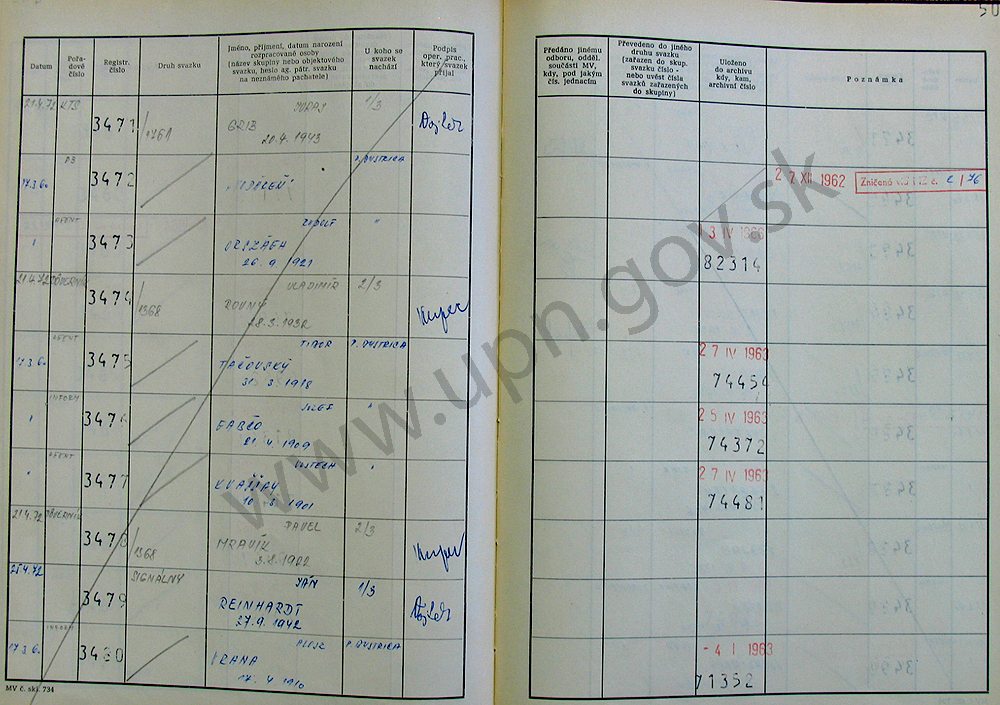 50
Datum
Pořa-
dové
číslo
Registr.
číslo
Druh svazku
Jméno, příjmení, datum narození
rozpracované osoby
(název skupiny nebo objektového
svazku, heslo ag. pátr. svazku
na neznámého pachatele)
U koho se
svazek
nachází
Podpis
oper. prac.,
který svazek
přijal
Předáno jinému
odboru, odděl.
součásti MV,
kdy, pod jakým
čís. jednacím
Převedeno do jiného
druhu svazku
(zařazen do skup.
svazku číslo -
nebo uvést čísla
svazků zařazených
do skupiny)
Uloženo
do archivu
kdy, kam,
archivní číslo
Poznámka
21.4.72 KTS
3471
GRIB
20.4.1943
1/3
17.3.60
3472
P. BYSTRICA
27 XII 1962
AGENT
3473
RUDOLF
ORSZÁGH
26.9.1921
82314
21.4.72 DÔVERNÍK
3474
1368
VLADIMÍR
ROVNÝ
28.3.1932
2/3
AGENT
17.3.60
3475
TIBOR
TAČOVSKÝ
31.3.1918
P. BYSTRICA
27 IV 1963
74454
INFORM
3476
JOZEF
21.4.1909
25 IV 1963
74372
AGENT
3477
VOJTECH
10.3.1901
27 IV 1963
74481
21.4.72 DÔVERNÍK
3478
1368
PAVEL
MRAVÍK
3.8.1922
2/3
25.4.72
3479
SIGNÁLNY
JÁN
REINHARDT
27.9.1942
1/3
INFORM
17.3.60
3480
ALOJZ
VRANA
P. BYSTRICA
- 4 I 1963
71352
MV č. skl. 734
www.upn.gov.sk